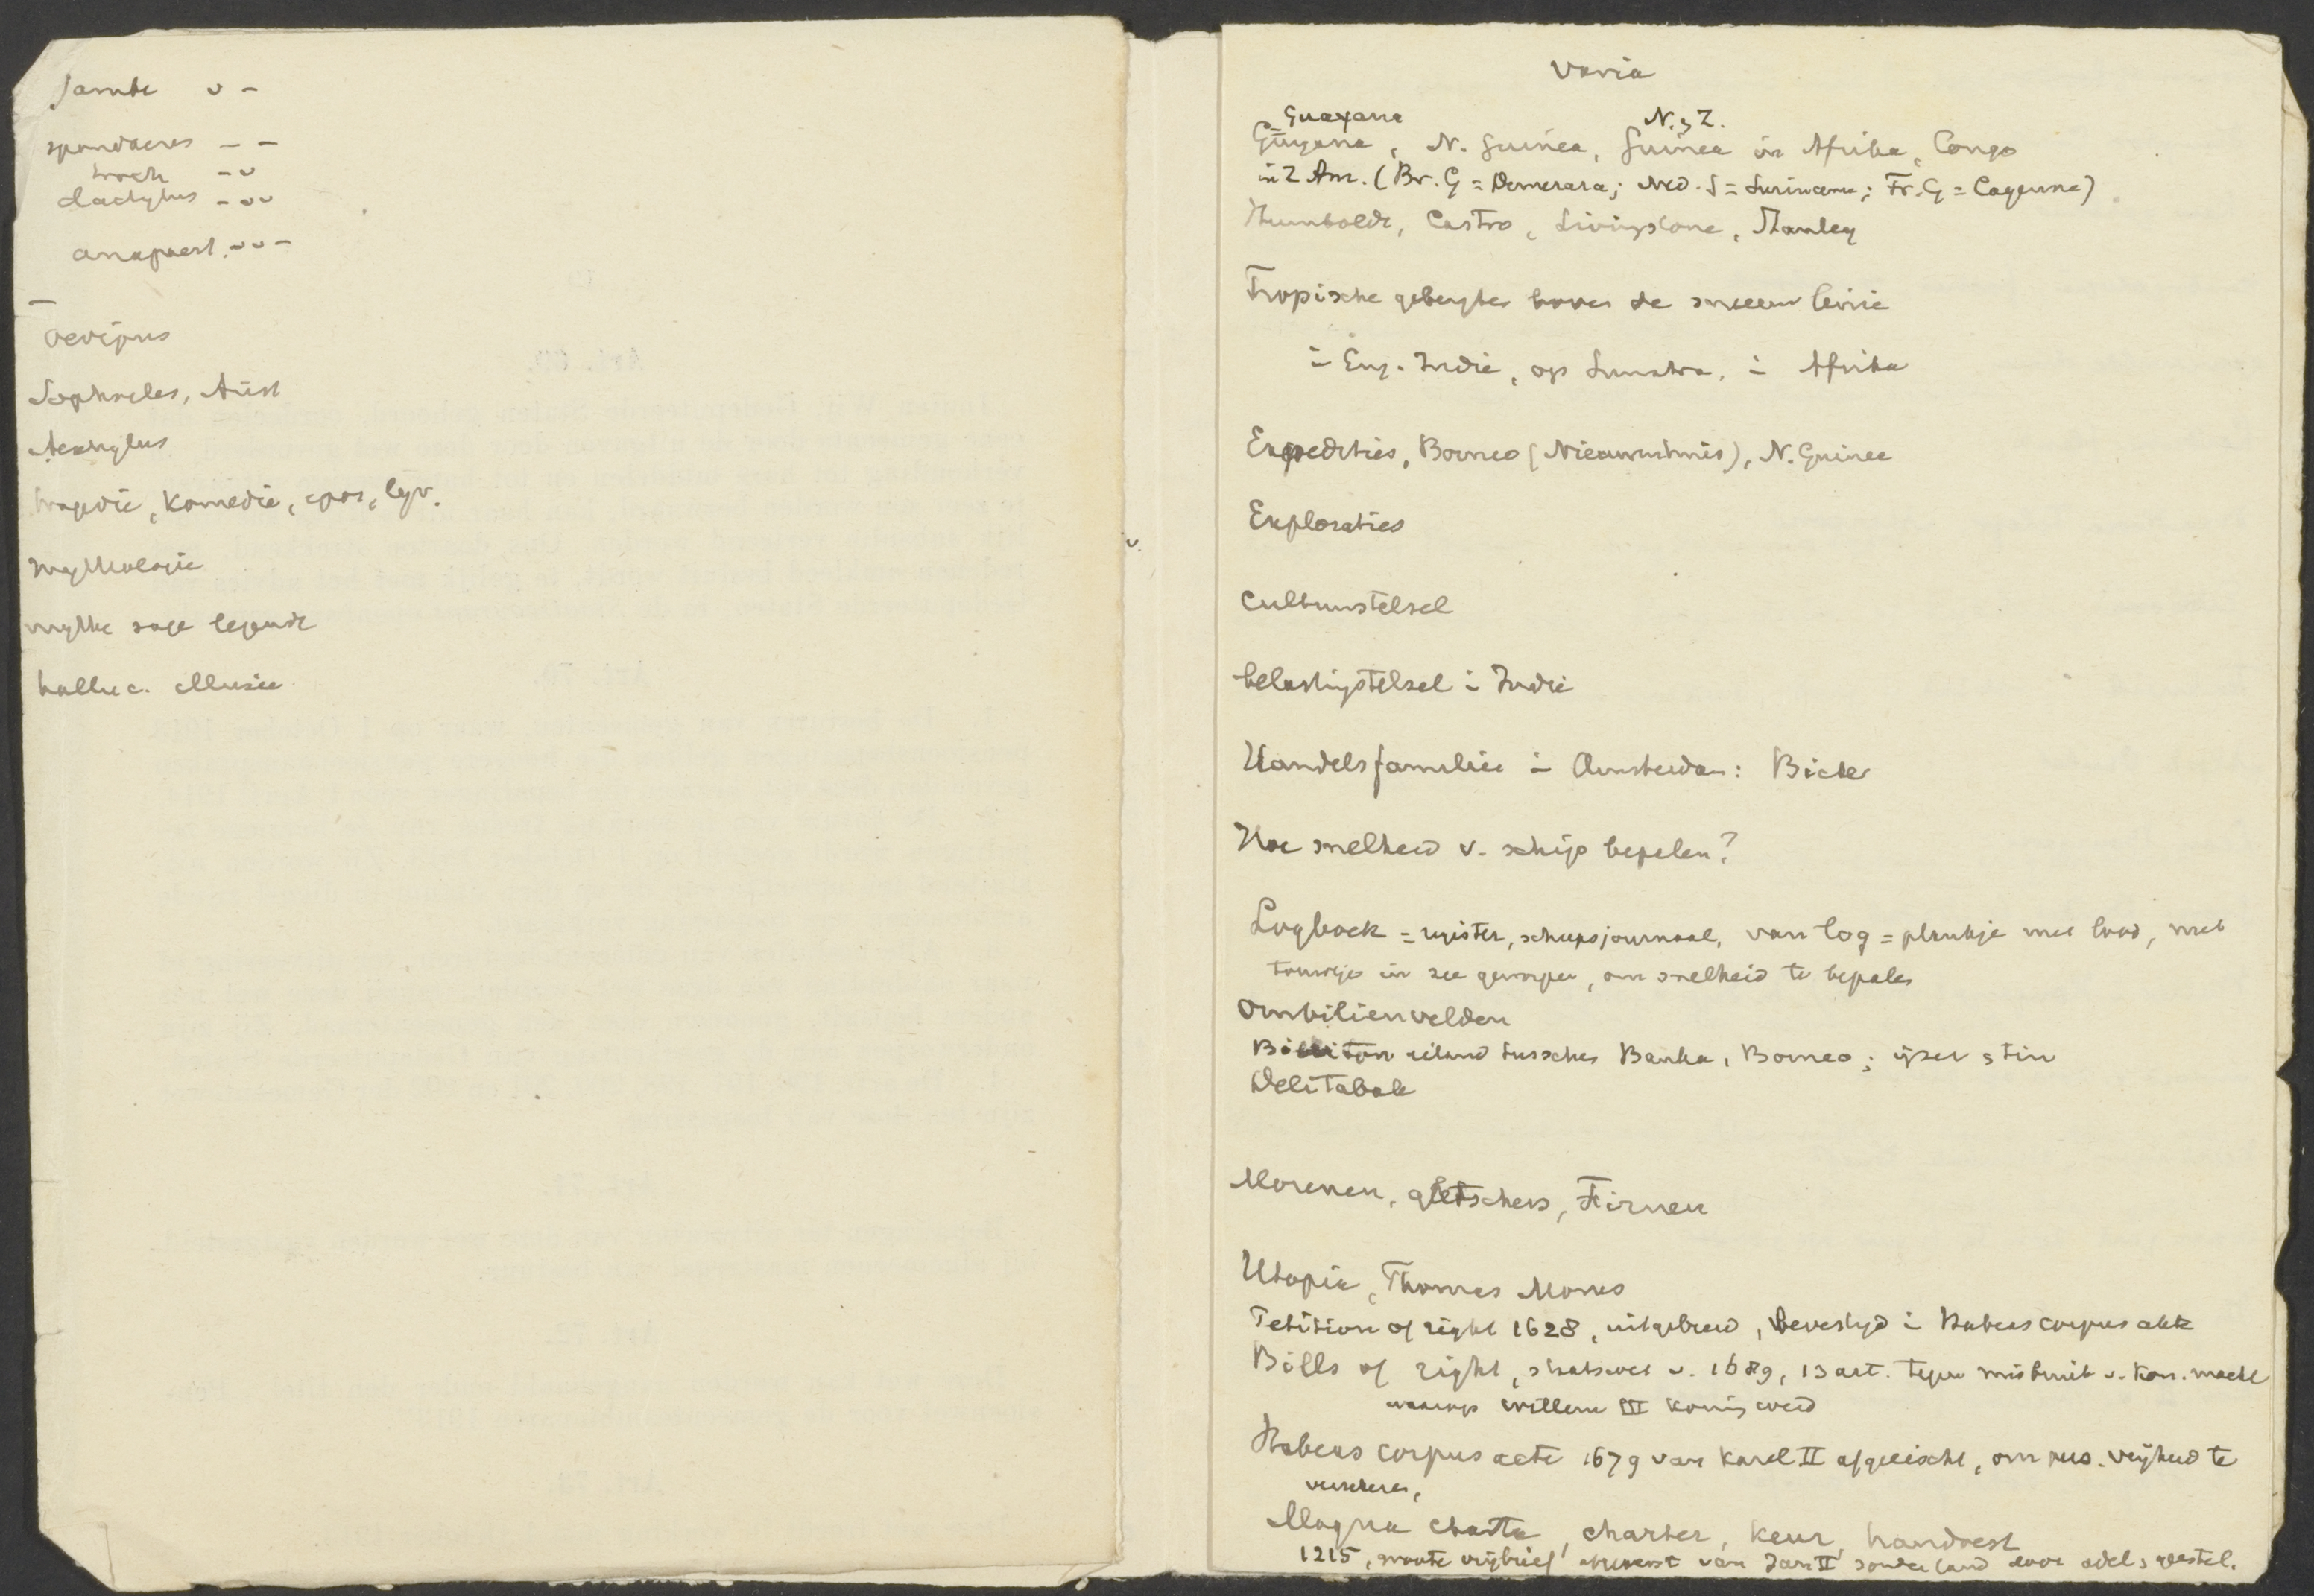 Jambe ᴗ –
spondaeus – –
troch – ᴗ
dactylus – ᴗᴗ
anapaest. ᴗᴗ –
–
Oedipus
Sophocles, Arist
Aeschylus
tragedie, komedie, epos, lyr.
mythologie
mythe sage legende
halluc. illusie
Varia
= Guayana N. & Z.
Guyana, N. Guinea, Guinea in Afrika, Congo
in Z Am. (Br. G = Demerara; Ned. G = Suriname; Fr. G = Cayenne)
Humboldt, Castro, Livingstone, Stanley
Tropische gebergtes boven de sneeuwlinie
in Eng. Indie, op Sumatra, in Afrika
Expedities, Borneo (Nieuwenhuis), N. Guinea
Exploraties
Cultuurstelsel
belastingstelsel in Indie
Handelsfamilies in Amsterdam: Bicker
Hoe snelheid v. schip bepalen?
Logboek = register, scheepsjournaal, van log = plankje met lood, met
touwtje in zee geworpen, om snelheid te bepalen
Ombilienvelden
Billiton eiland tusschen Banka, Borneo; ijzer & tin
Delitabak
Morenen, gletschers, Firnen
Utopia, Thomas Morus
Petition of right 1628, uitgebreid, bevestigd in Habeas corpus akte
Bills of right, staatswet v. 1689, 13 art. tegen misbruik v. kon. macht
waarop Willem III koning werd
Habeas corpus acte 1679 van Karel II afgeeischt, om pers. vrijheid te
verzekeren,
Magna Charta, charter, keur, handvest
1215, groote vrijbrief van Jan II zonder land door adel & geestel.